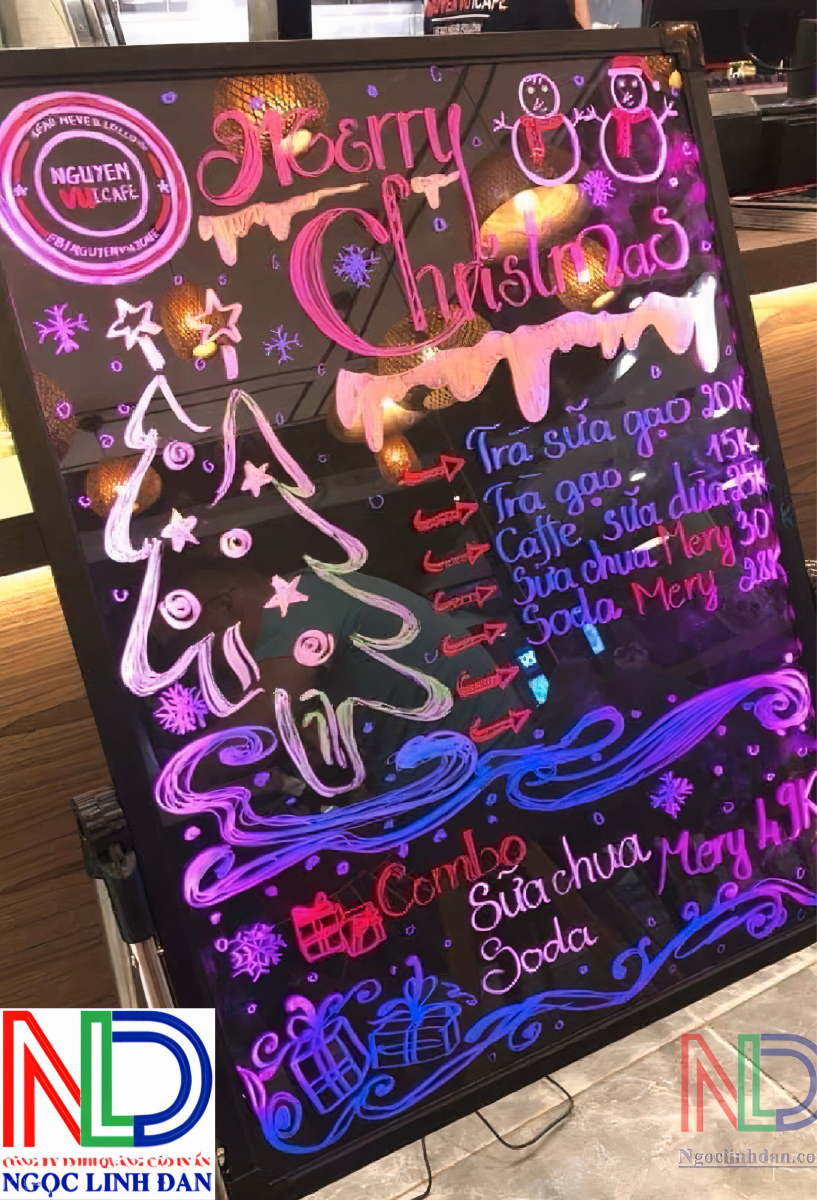 NGUYEN
VUI CAFE
Merry
Christmas
Trà sữa gạo 20K
Trà gạo 15K
Caffe sữa dừa 25K
Sữa chua Mery 30K
Soda Mery 28K
Combo
Sữa chua Mery 49K
Soda
NLD
NGỌC LINH ĐAN
NLD
Ngoclinhdan.co